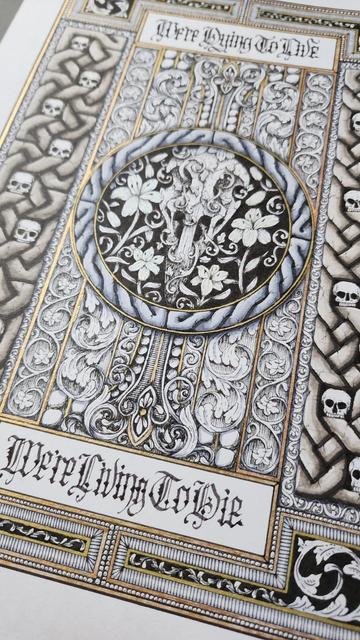 Were Dying To Live
Were Living To Die